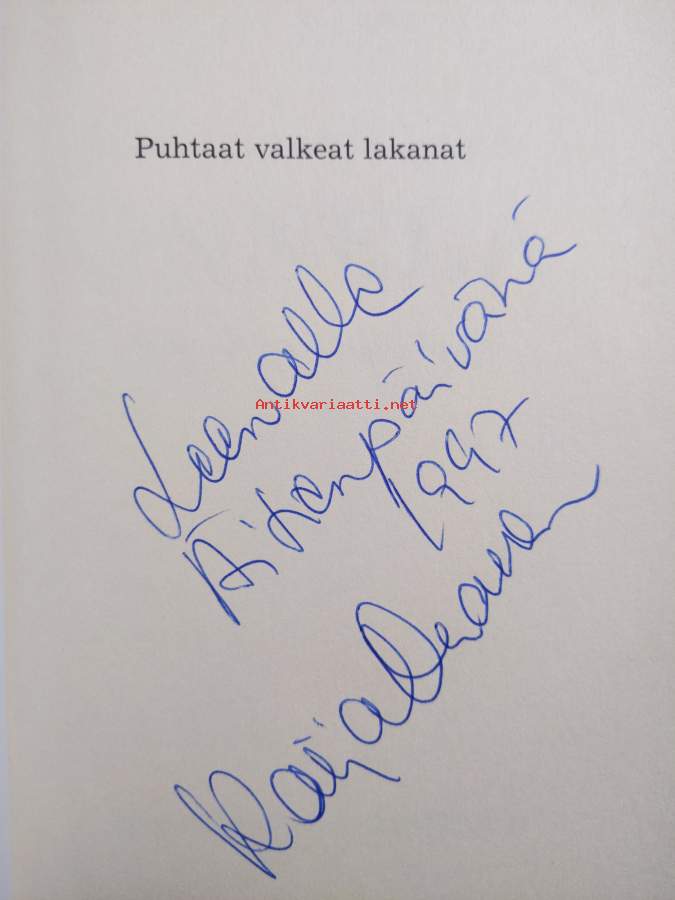 Puhtaat valkeat lakanat
Leenalle
Antikvariaatti.net
Äitienpäivänä
1997
Raija Oranen